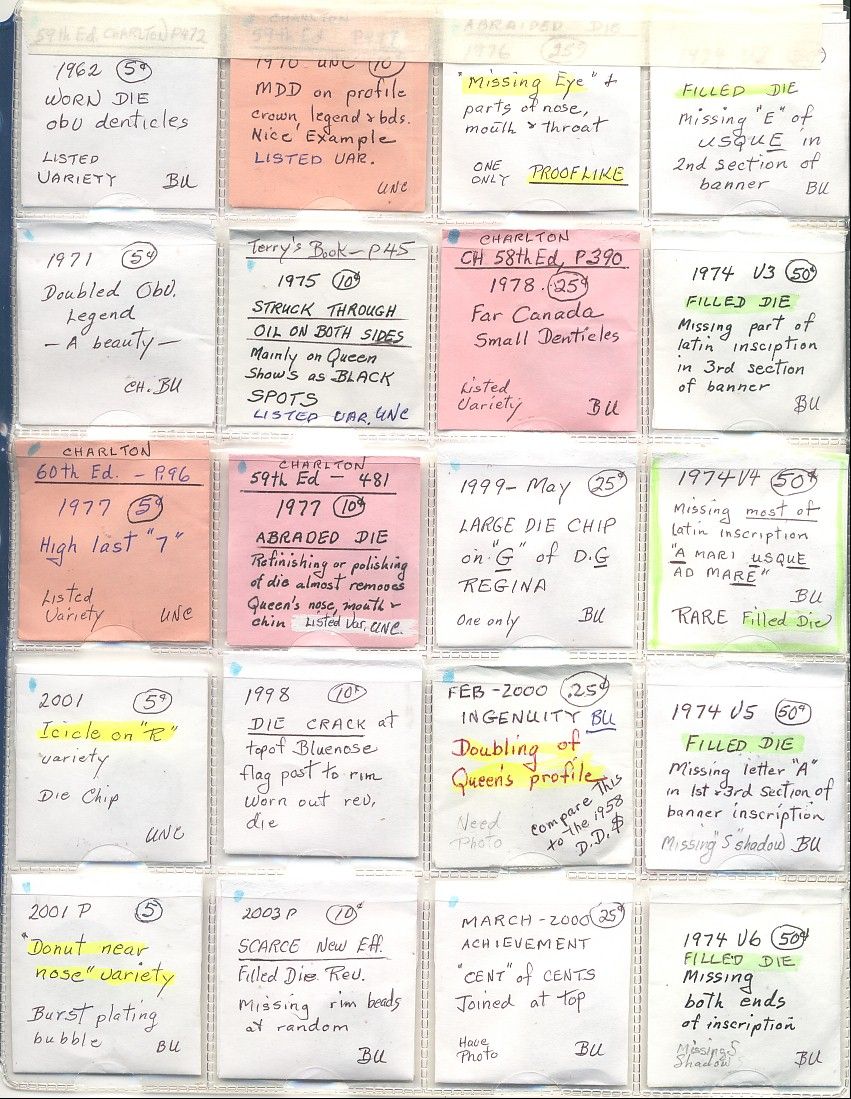 59th Ed. CHARLTON P472
1962 5¢
WORN DIE
obv denticles
LISTED
VARIETY BU
CHARLTON
59th Ed P477
1970 UNC 10
MDD on profile
crown, legend & bds.
Nice Example
LISTED VAR.
UNC
ABRAIDED DIE
1976 25¢
"Missing Eye" &
parts of nose,
mouth & throat
ONE
ONLY PROOFLIKE
1974
FILLED DIE
Missing "E" of
USQUE in
2nd section of
banner BU
1971 5¢
Doubled Obv.
Legend
— A beauty —
CH. BU
Terry's Book - P45
1975 10¢
STRUCK THROUGH
OIL ON BOTH SIDES
Mainly on Queen
Shows as BLACK
SPOTS
LISTED VAR. UNC
CHARLTON
CH 58th Ed, P390
1978 .25¢
Far Canada
Small Denticles
Listed
Variety BU
1974 V3 50¢
FILLED DIE
Missing part of
latin insciption
in 3rd section
of banner
BU
CHARLTON
60th Ed. - P.96
1977 5¢
High last "7"
Listed
Variety UNC
CHARLTON
59th Ed - 481
1977 10¢
ABRADED DIE
Refinishing or polishing
of die almost removes
Queen's nose, mouth &
chin Listed Var. UNC.
1999 - May 25¢
LARGE DIE CHIP
on "G" of D.G
REGINA
One only BU
1974 V4 50¢
Missing most of
latin inscription
"A MARI USQUE
AD MARE"
BU
RARE Filled Die
2001 5¢
Icicle on "R"
variety
Die Chip
UNC
1998 10¢
DIE CRACK at
top of Bluenose
flag post to rim
Worn out rev.
die
FEB - 2000 .25¢
INGENUITY BU
Doubling of
Queen's profile
Need
Photo
Compare This
to the 1958
D.D.$
1974 V5 50¢
FILLED DIE
Missing letter "A"
in 1st & 3rd section of
banner inscription
Missing "S" shadow BU
2001 P 5
"Donut near
nose" variety
Burst plating
bubble BU
2003 P 10¢
SCARCE New Eff.
Filled Die Rev.
Missing rim beads
at random
BU
MARCH - 2000 25¢
ACHIEVEMENT
"CENT" of CENTS
Joined at top
Have
Photo BU
1974 V6 50¢
FILLED DIE
Missing
both ends
of inscription
Missing S
Shadow BU